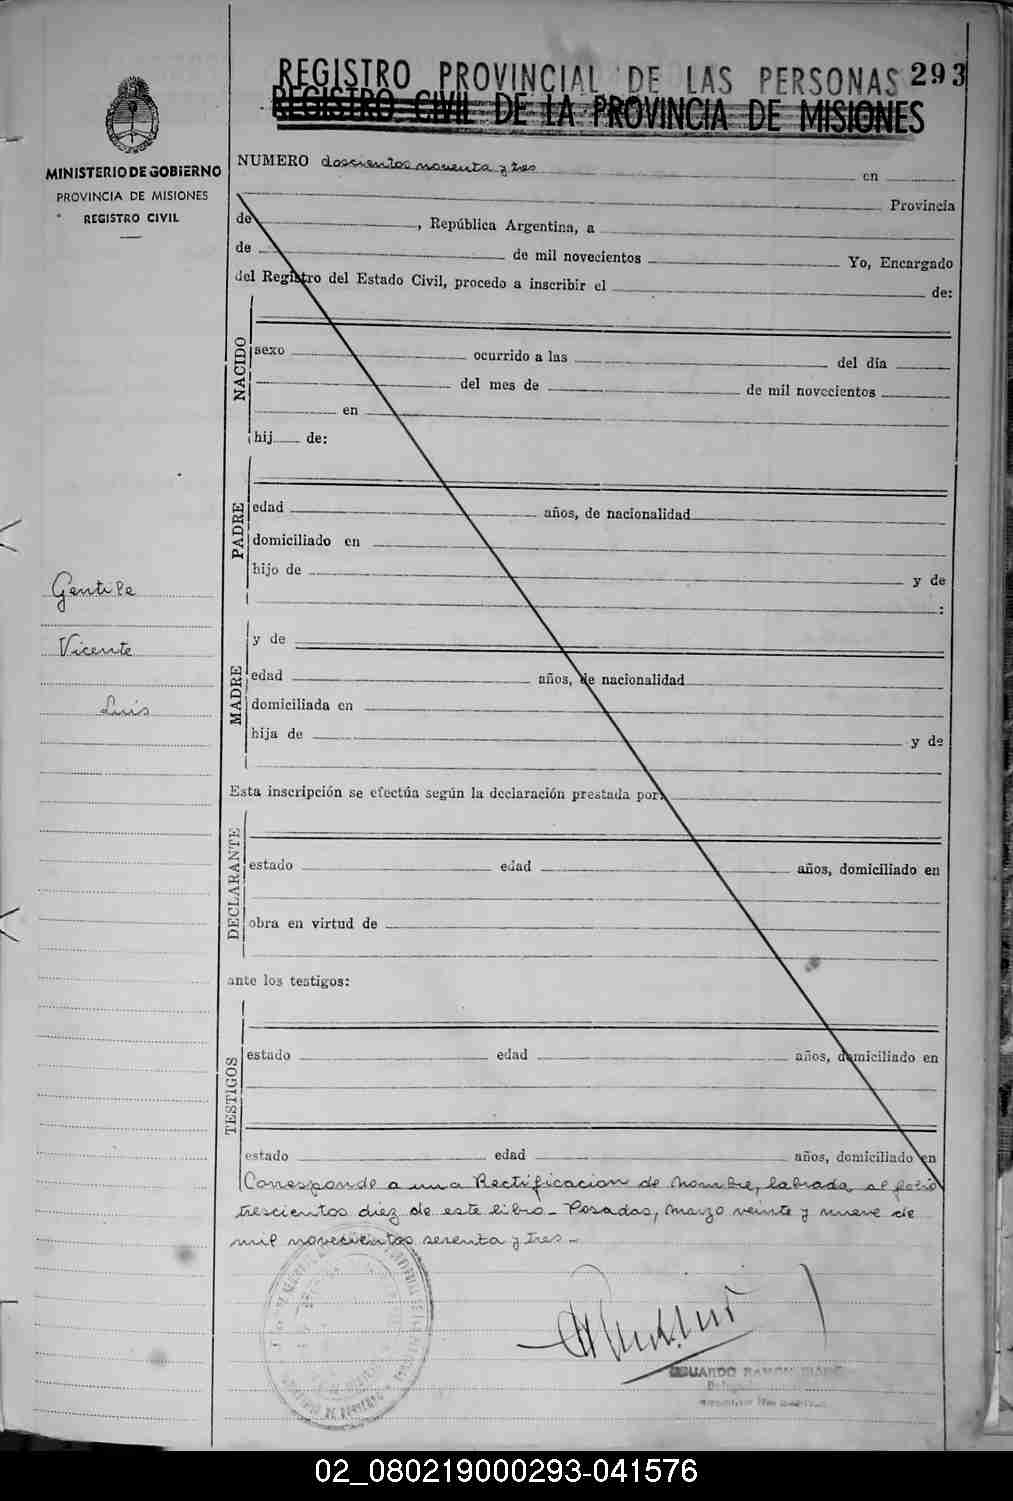 REGISTRO PROVINCIAL DE LAS PERSONAS 293
REGISTRO CIVIL DE LA PROVINCIA DE MISIONES
MINISTERIO DE GOBIERNO
PROVINCIA DE MISIONES
REGISTRO CIVIL
NUMERO doscientos noventa y tres en
Provincia
de , República Argentina, a
de de mil novecientos Yo, Encargado
del Registro del Estado Civil, procedo a inscribir el de:
NACIDO
sexo ocurrido a las del día
del mes de de mil novecientos
en
hij de:
PADRE
edad años, de nacionalidad
domiciliado en
hijo de y de
:
Gentile
Vicente
Luis
MADRE
y de
edad años, de nacionalidad
domiciliada en
hija de y de
Esta inscripción se efectúa según la declaración prestada por:
DECLARANTE
estado edad años, domiciliado en
obra en virtud de
ante los testigos:
TESTIGOS
estado edad años, domiciliado en
estado edad años, domiciliado en
Corresponde a una Rectificacion de nombre, labrada al folio
trescientos diez de este libro - Posadas, Marzo veinte y nueve de
mil novecientos setenta y tres -
EDUARDO RAMON
02_080219000293-041576